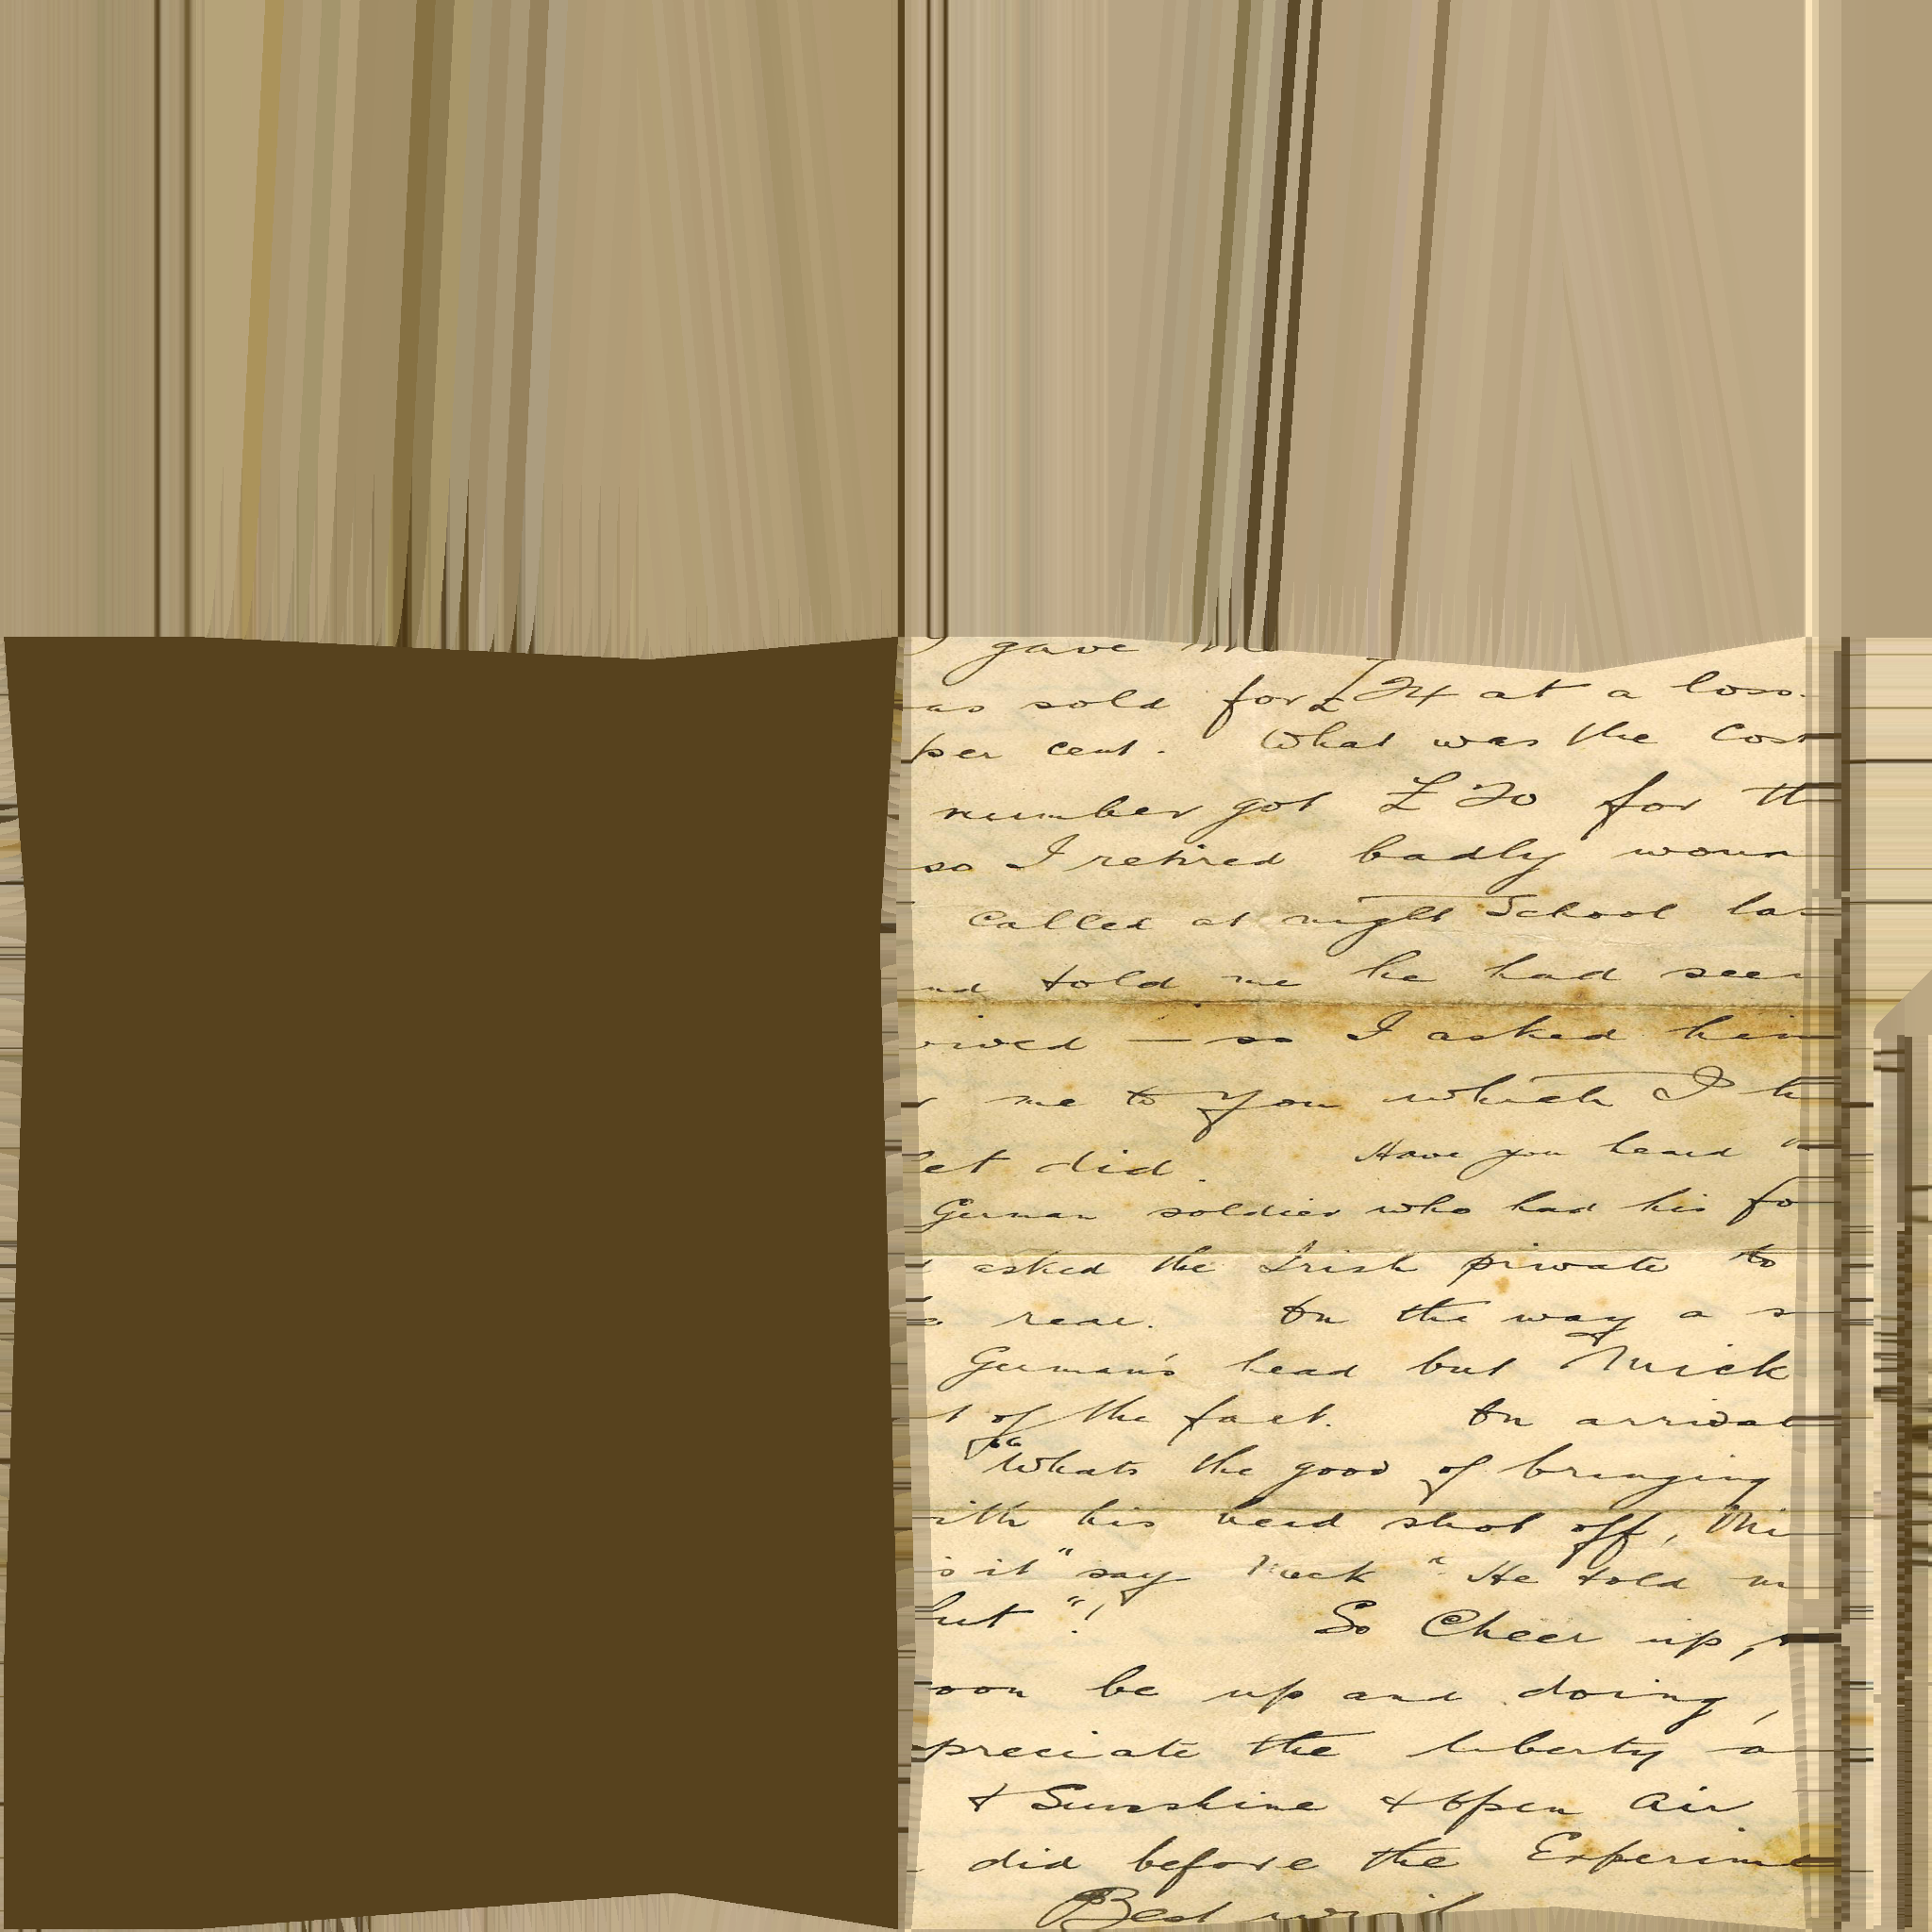 gave me
as sold for £24 at a loss
per cent. What was the Cost
number got £20 for th
so I retired badly woun
Called at night School las
nd told me he had seen
rived — so I asked him
r me to you which I th
et did. Have you heard
German soldier who had his fo
d asked the Irish private to
rear. On the way a s
German's head but Mick
t of the fact. On arrival
"Whats the good of bringing
ith his head shot off, this
is it" say Mick "He told m
fut"! So Cheer up,
oon be up and doing,
preciate the liberty a
& Sunshine & Open Air
did before the Experime
Best wish